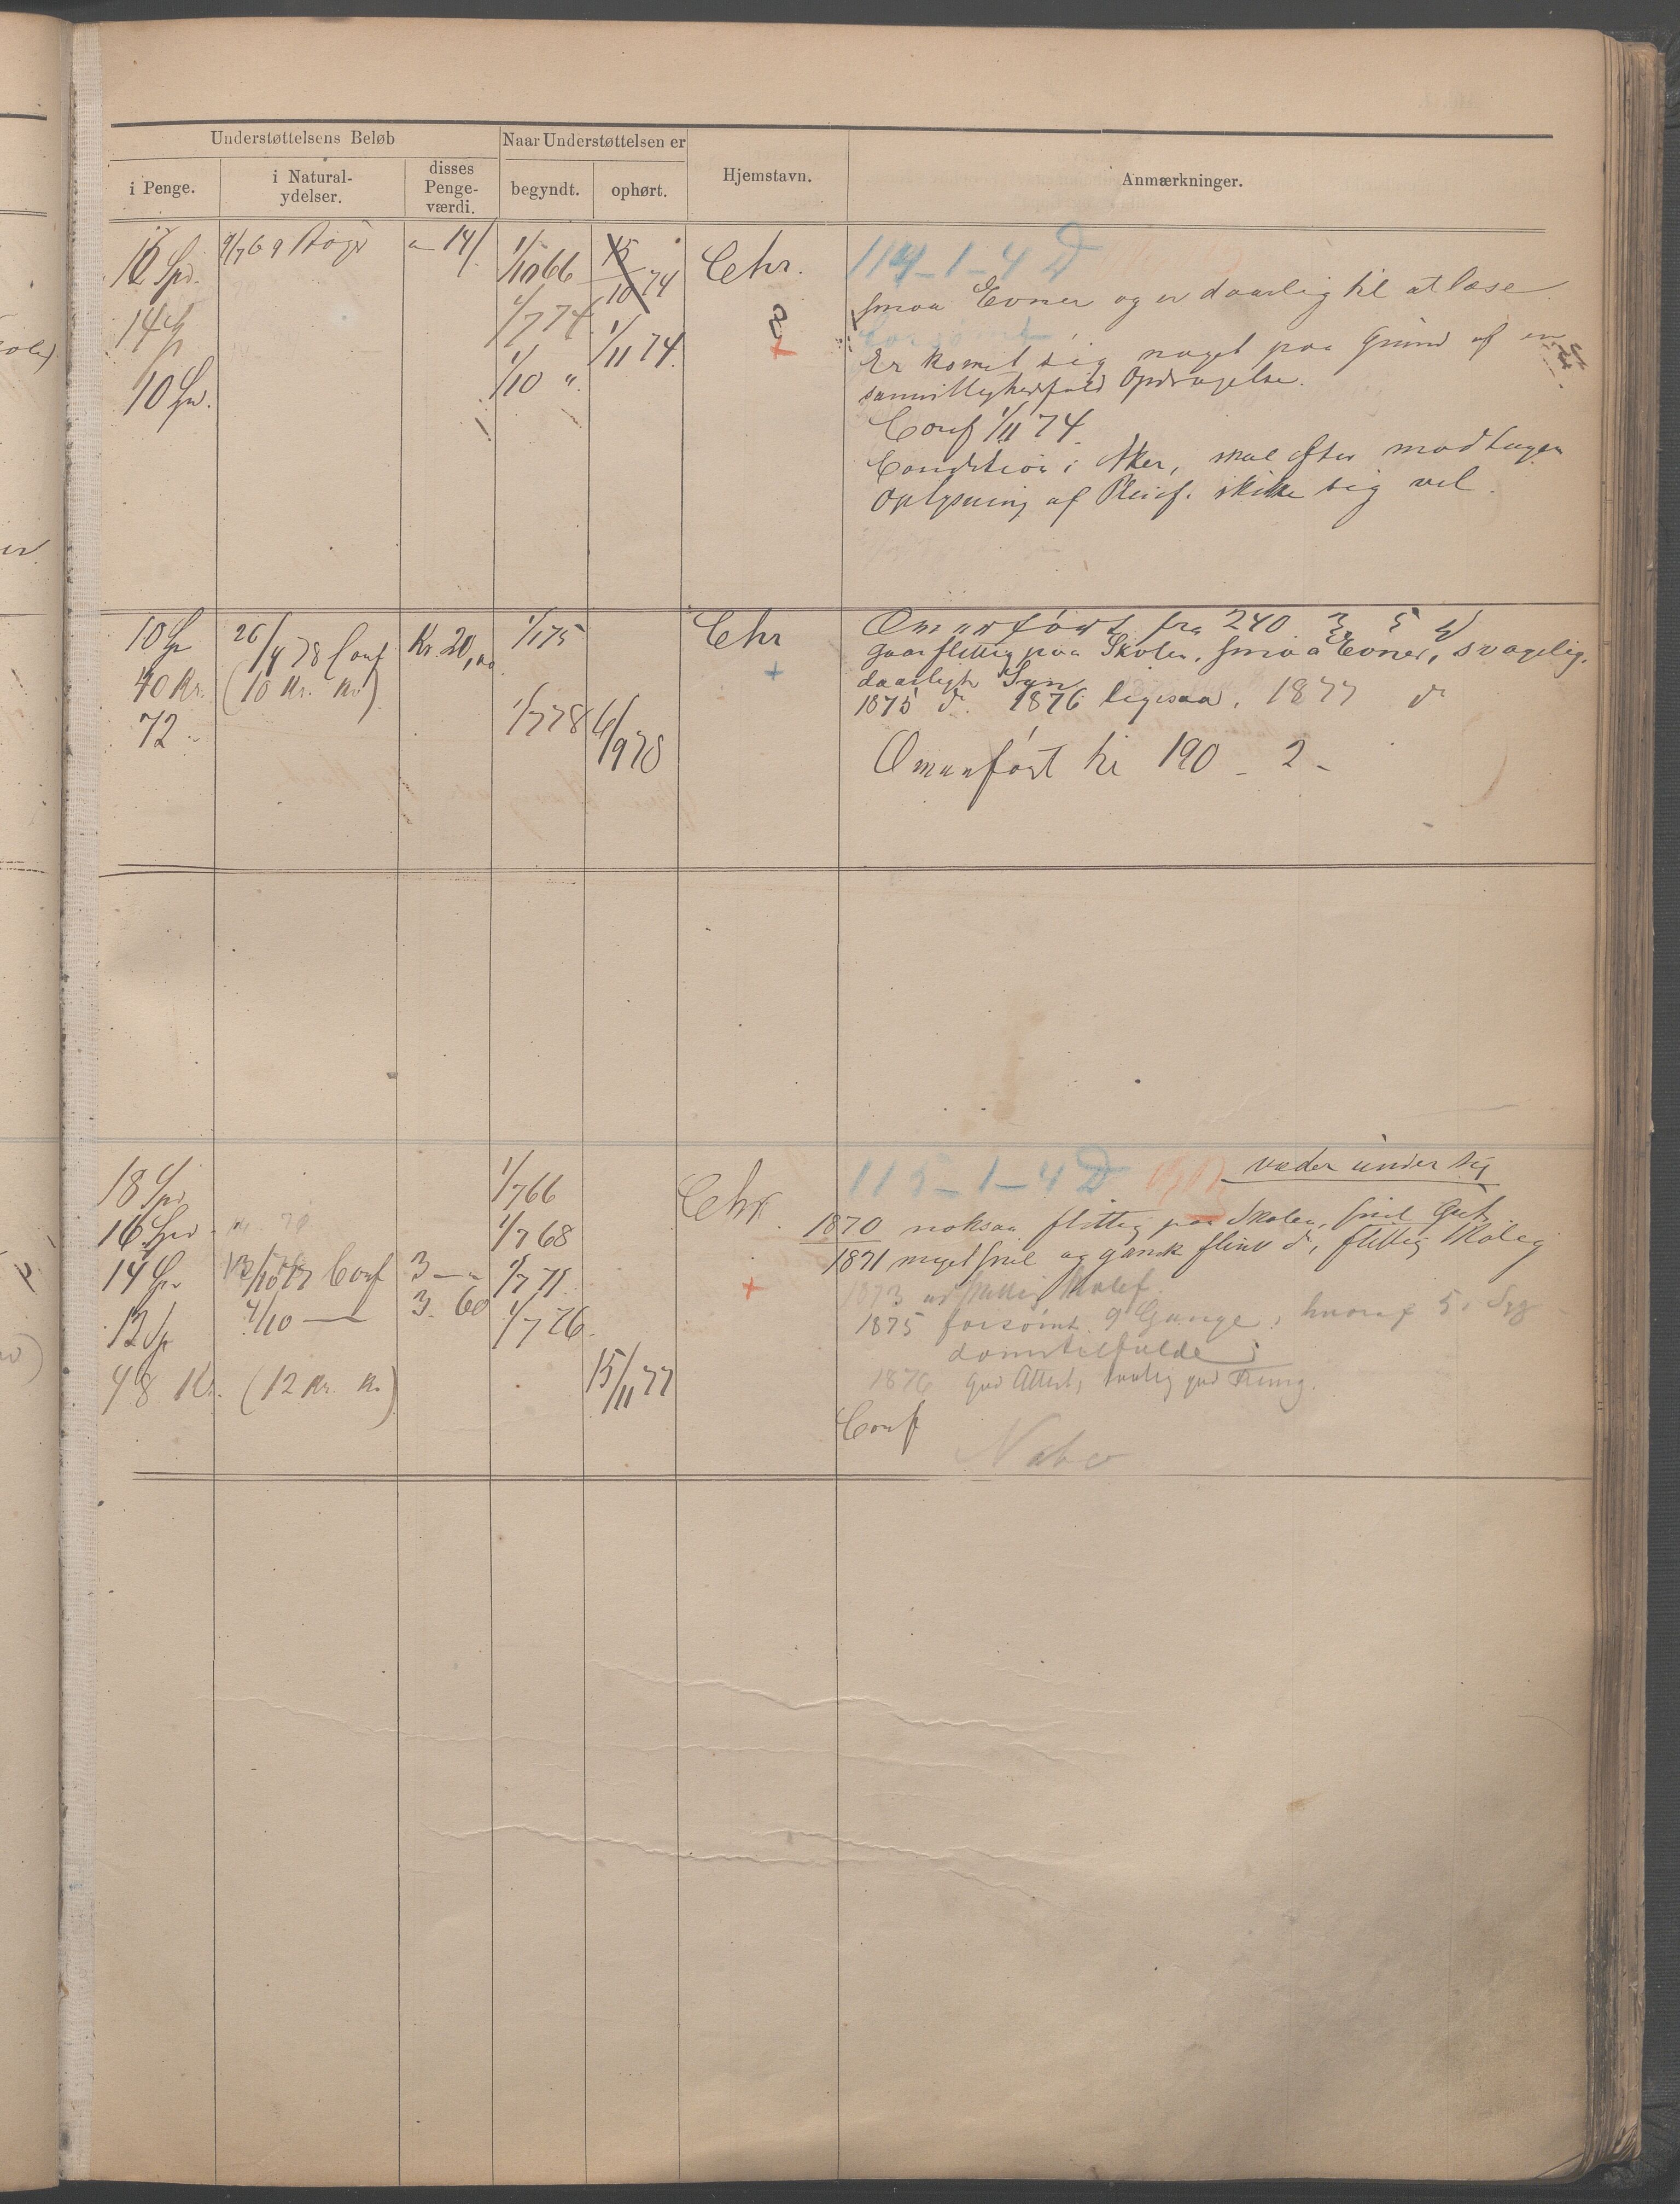 Understøttelsens Beløb
Naar Understøttelsen er
i Penge.
i Natural-
ydelser.
disses
Penge-
værdi.
begyndt.
ophørt.
Hjemstavn.
Anmærkninger.
12 Spd.
1/10 66
15/10 74
Chr.
114-1-4 D
1/7 74
1/11 74.
1/10 "
10 Spd.
smaa Evner og er daarlig til at læse
Er komet sig noget paa Grund af en
samvittighedsfuld Opdragelse.
Conf 1/11 74.
Condition i Aker, skal efter modtagen
Oplysning af Pleief. skikke sig vel.
10 Sp
26/4 78 Conf
Kr. 20,00
1/1 75
Chr
40 Kr.
(10 Kr. Kv)
72
1/7 78
6/9 78
Omanført fra 240 3 5
gaar flittig paa Skolen, smaa Evner, svagelig,
daarligt Syn
1875 do. 1876 ligesaa. 1877 do
Omanført til 190 - 2 -
18 Spd
1/7 66
Chr.
115-1-4 D
under
16 Spd
1/7 68
1870 noksaa flittig paa Skolen, snil Gut
14 Sp
Conf
3 —
1/7 71
1871 meget snil og gansk flink do, flittig Skoleg
12 Sp
4/10 —
3. 60
1/7 76
1873
1875 forsømt 9 Gange, hvoraf 5 i Syg
domstilfælde
48 Kr.
(12 Kr. Kv)
15/11 77
1876 god Attest,
Conf